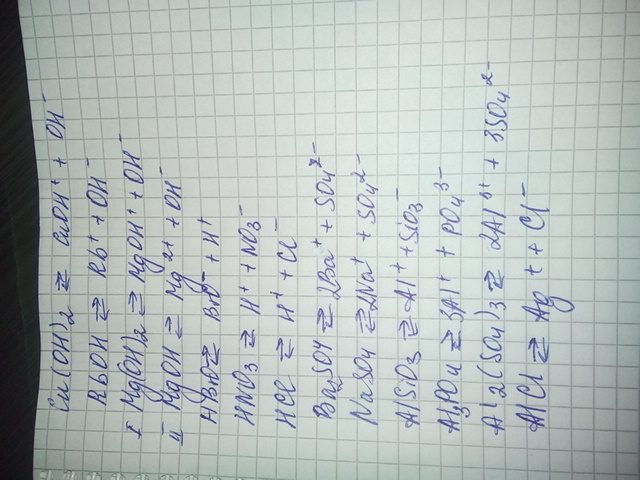 Cu(OH)₂ ⇄ CuOH⁺ + OH⁻
RbOH ⇄ Rb⁺ + OH⁻
I Mg(OH)₂ ⇄ MgOH⁺ + OH⁻
II MgOH ⇄ Mg²⁺ + OH⁻
HBrO ⇄ BrO⁻ + H⁺
HNO₃ ⇄ H⁺ + NO₃⁻
HCl ⇄ H⁺ + Cl⁻
Ba₂SO4 ⇄ 2Ba⁺ + SO₄²⁻
NaSO₄ ⇄ 2Na⁺ + SO₄²⁻
AlSiO₃ ⇄ Al⁺ + SiO₃⁻
Al₃PO₄ ⇄ 3Al⁺ + PO₄³⁻
Al₂(SO₄)₃ ⇄ 2Al³⁺ + 3SO₄²⁻
AlCl ⇄ Ag⁺ + Cl⁻